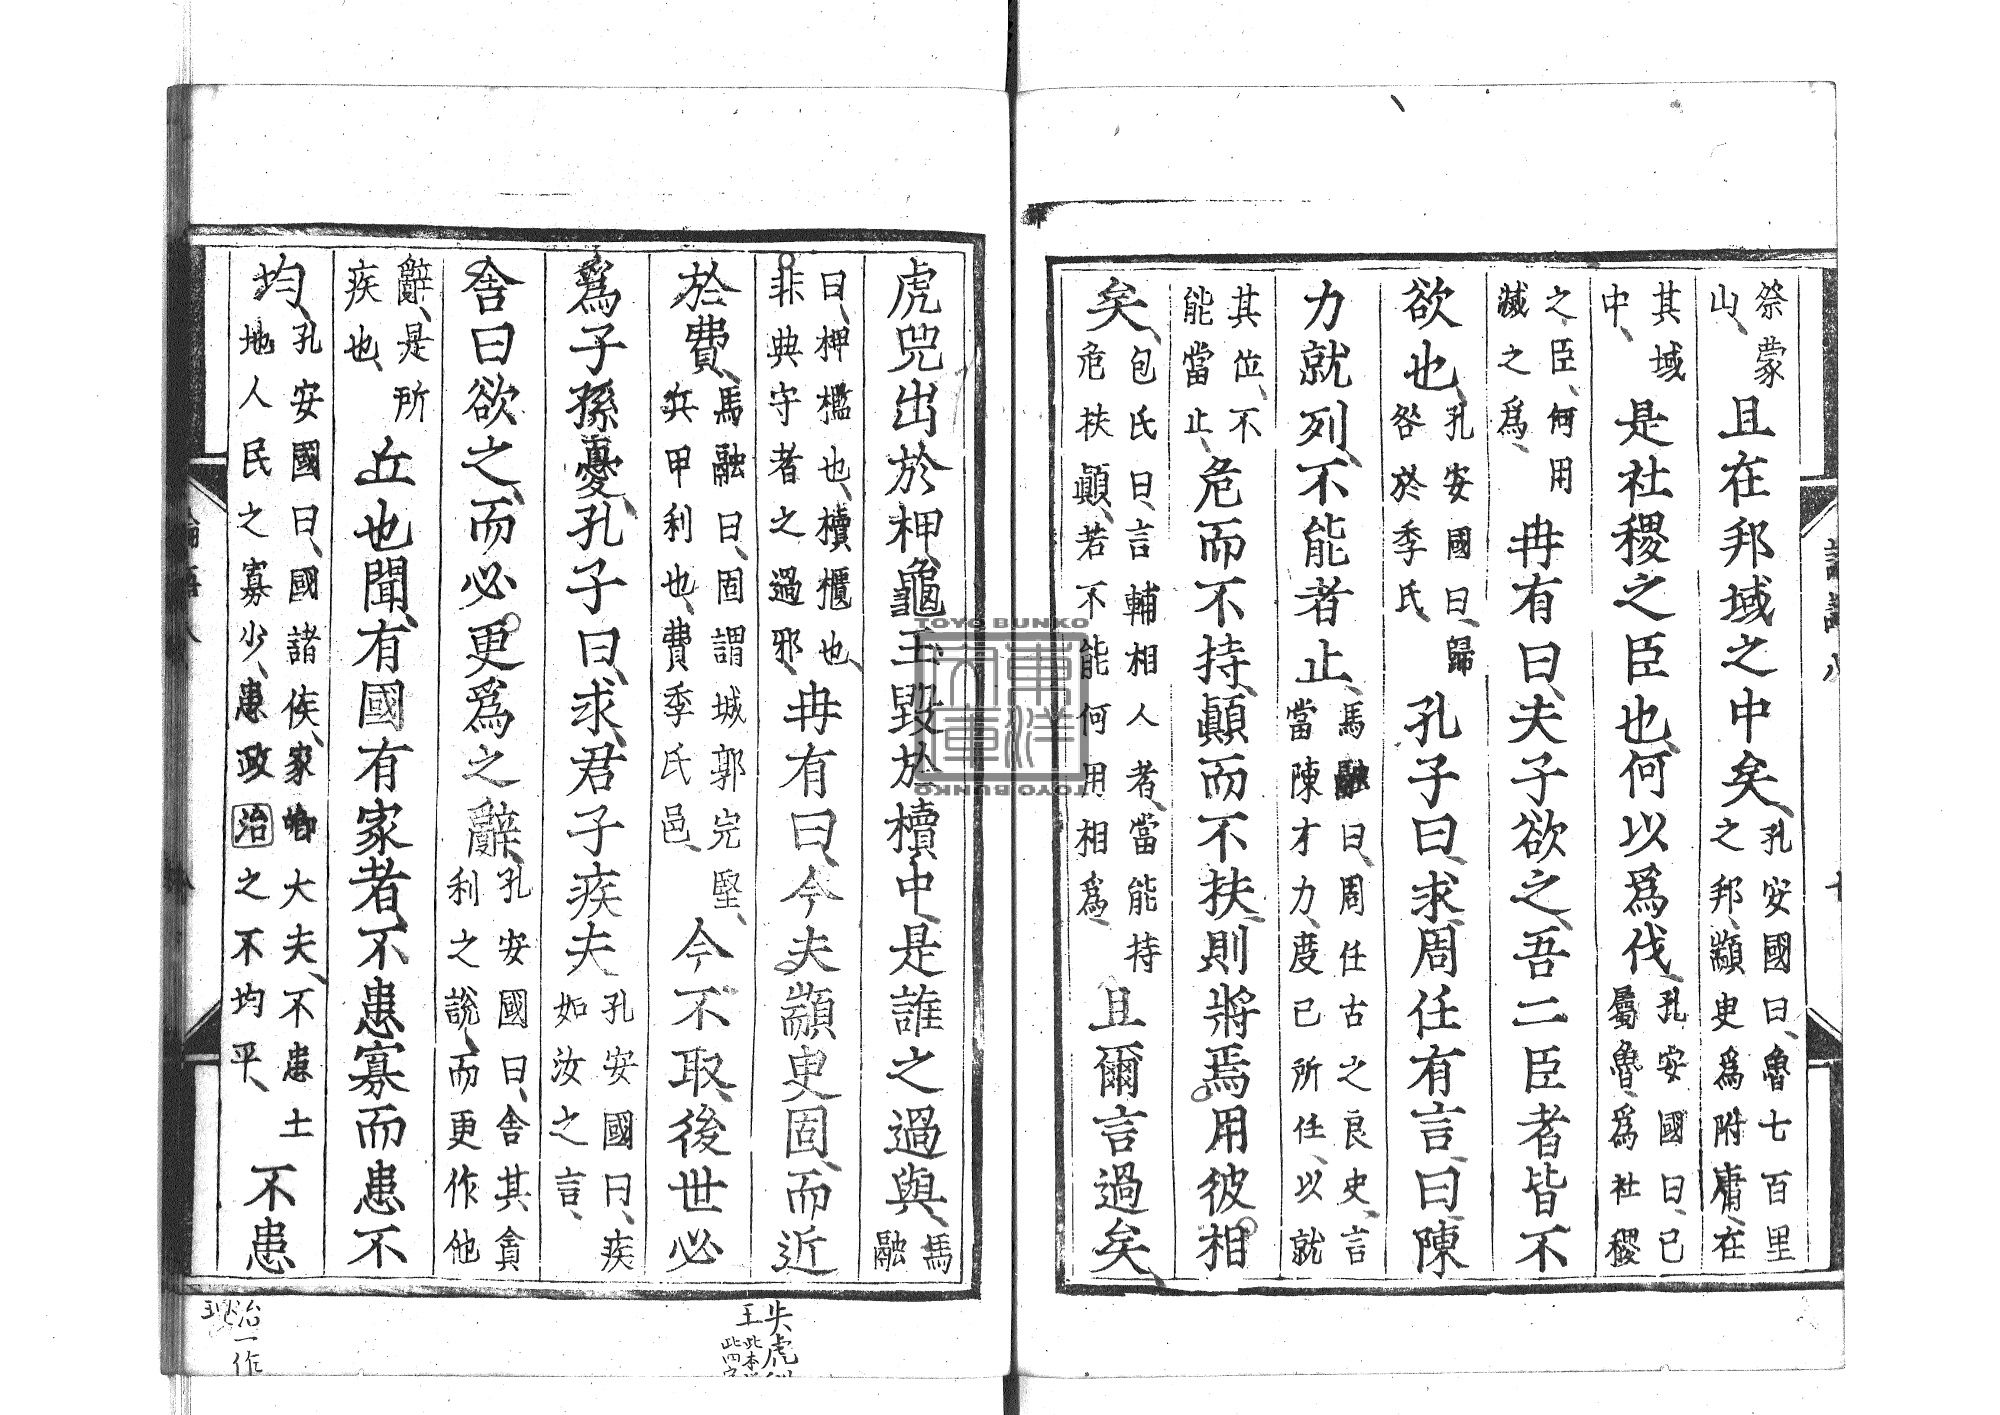 祭蒙山、且在邦域之中矣、孔安國曰、魯七百里之邦、顓臾爲附庸、在
其域中、是社稷之臣也、何以爲伐、孔安國曰、已屬魯、爲社稷
之臣、何用滅之爲、冉有曰、夫子欲之、吾二臣者皆不
欲也、孔安國曰、歸咎於季氏、孔子曰、求、周任有言、曰、陳
力就列、不能者止、馬融曰、周任古之良史、言當陳才力、度已所任、以就
其位、不能當止、危而不持、顚而不扶、則將焉用彼相
矣、包氏曰、言輔相人者、當能持危扶顚、若不能何用相爲、且爾言過矣、
虎兕出於柙、龜玉毀於櫝中、是誰之過與、馬融
曰、柙檻也、櫝櫃也、非典守者之過邪、冉有曰、今夫顓臾固、而近
於費、馬融曰、固謂城郭完堅、兵甲利也、費季氏邑、今不取、後世必
爲子孫憂、孔子曰、求、君子疾夫孔安國曰、疾如汝之言、
舍曰欲之、而必更爲之辭、孔安國曰、舍其貪利之說、而更作他
辭、是所疾也、丘也聞、有國有家者、不患寡而患不
均、孔安國曰、國諸侯、家卿大夫、不患土地人民之寡少、患政治之不均平、不患
治一作
失虎
王
TOYO BUNKO
東洋文庫
TOYO BUNKO